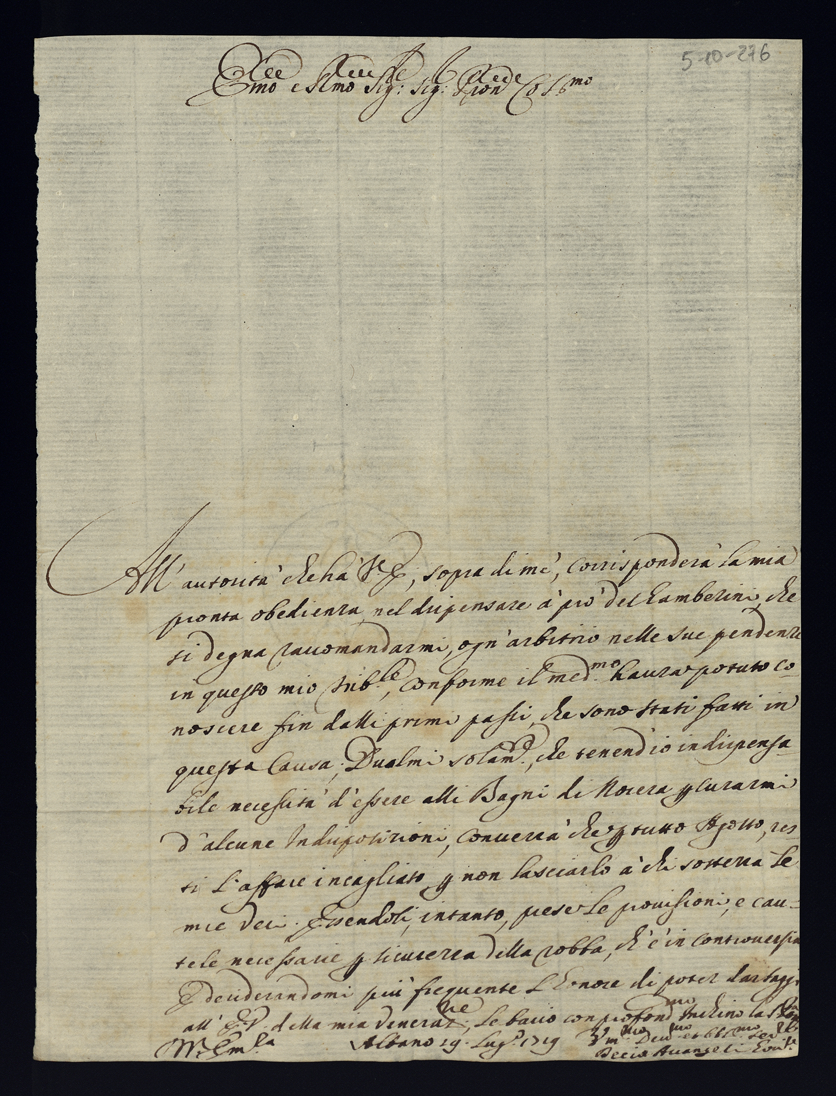 5-10-276
Emo e Rmo Sig: Sig: Pron Col.mo
All' autorità che hà V.E, sopra di mè, corrisponderà la mia
pronta obedienza nel dispensare à prò del Lamberini, che
si degna raccomandarmi, ogn' arbitrio nelle sue pendenze
in questo mio Trib.le, conforme il med.mo haurà potuto co-
noscere fin dalli primi passi, che sono stati fatti in
questa Causa; Duolmi solam.te, che tenend'io indispensa-
bile necessità d'essere alli Bagni di Nocera p curarmi
d'alcune Indisposizioni, converrà che p tutto Agosto, res-
ti l'affare incagliato, p non lasciarlo à chi sosterrà le
mie veci. Essendosi, intanto, prese le provisioni, e cau-
tele necessarie p sicurezza della robba, ch'è in controversia
E desiderandomi più frequente l'honore di poter dar saggi
all' E.V. della mia veneraz.ne, Le bacio con profond.mo Inchino la
Albano 19 Lug.o 1719
V. Em.za
Decio